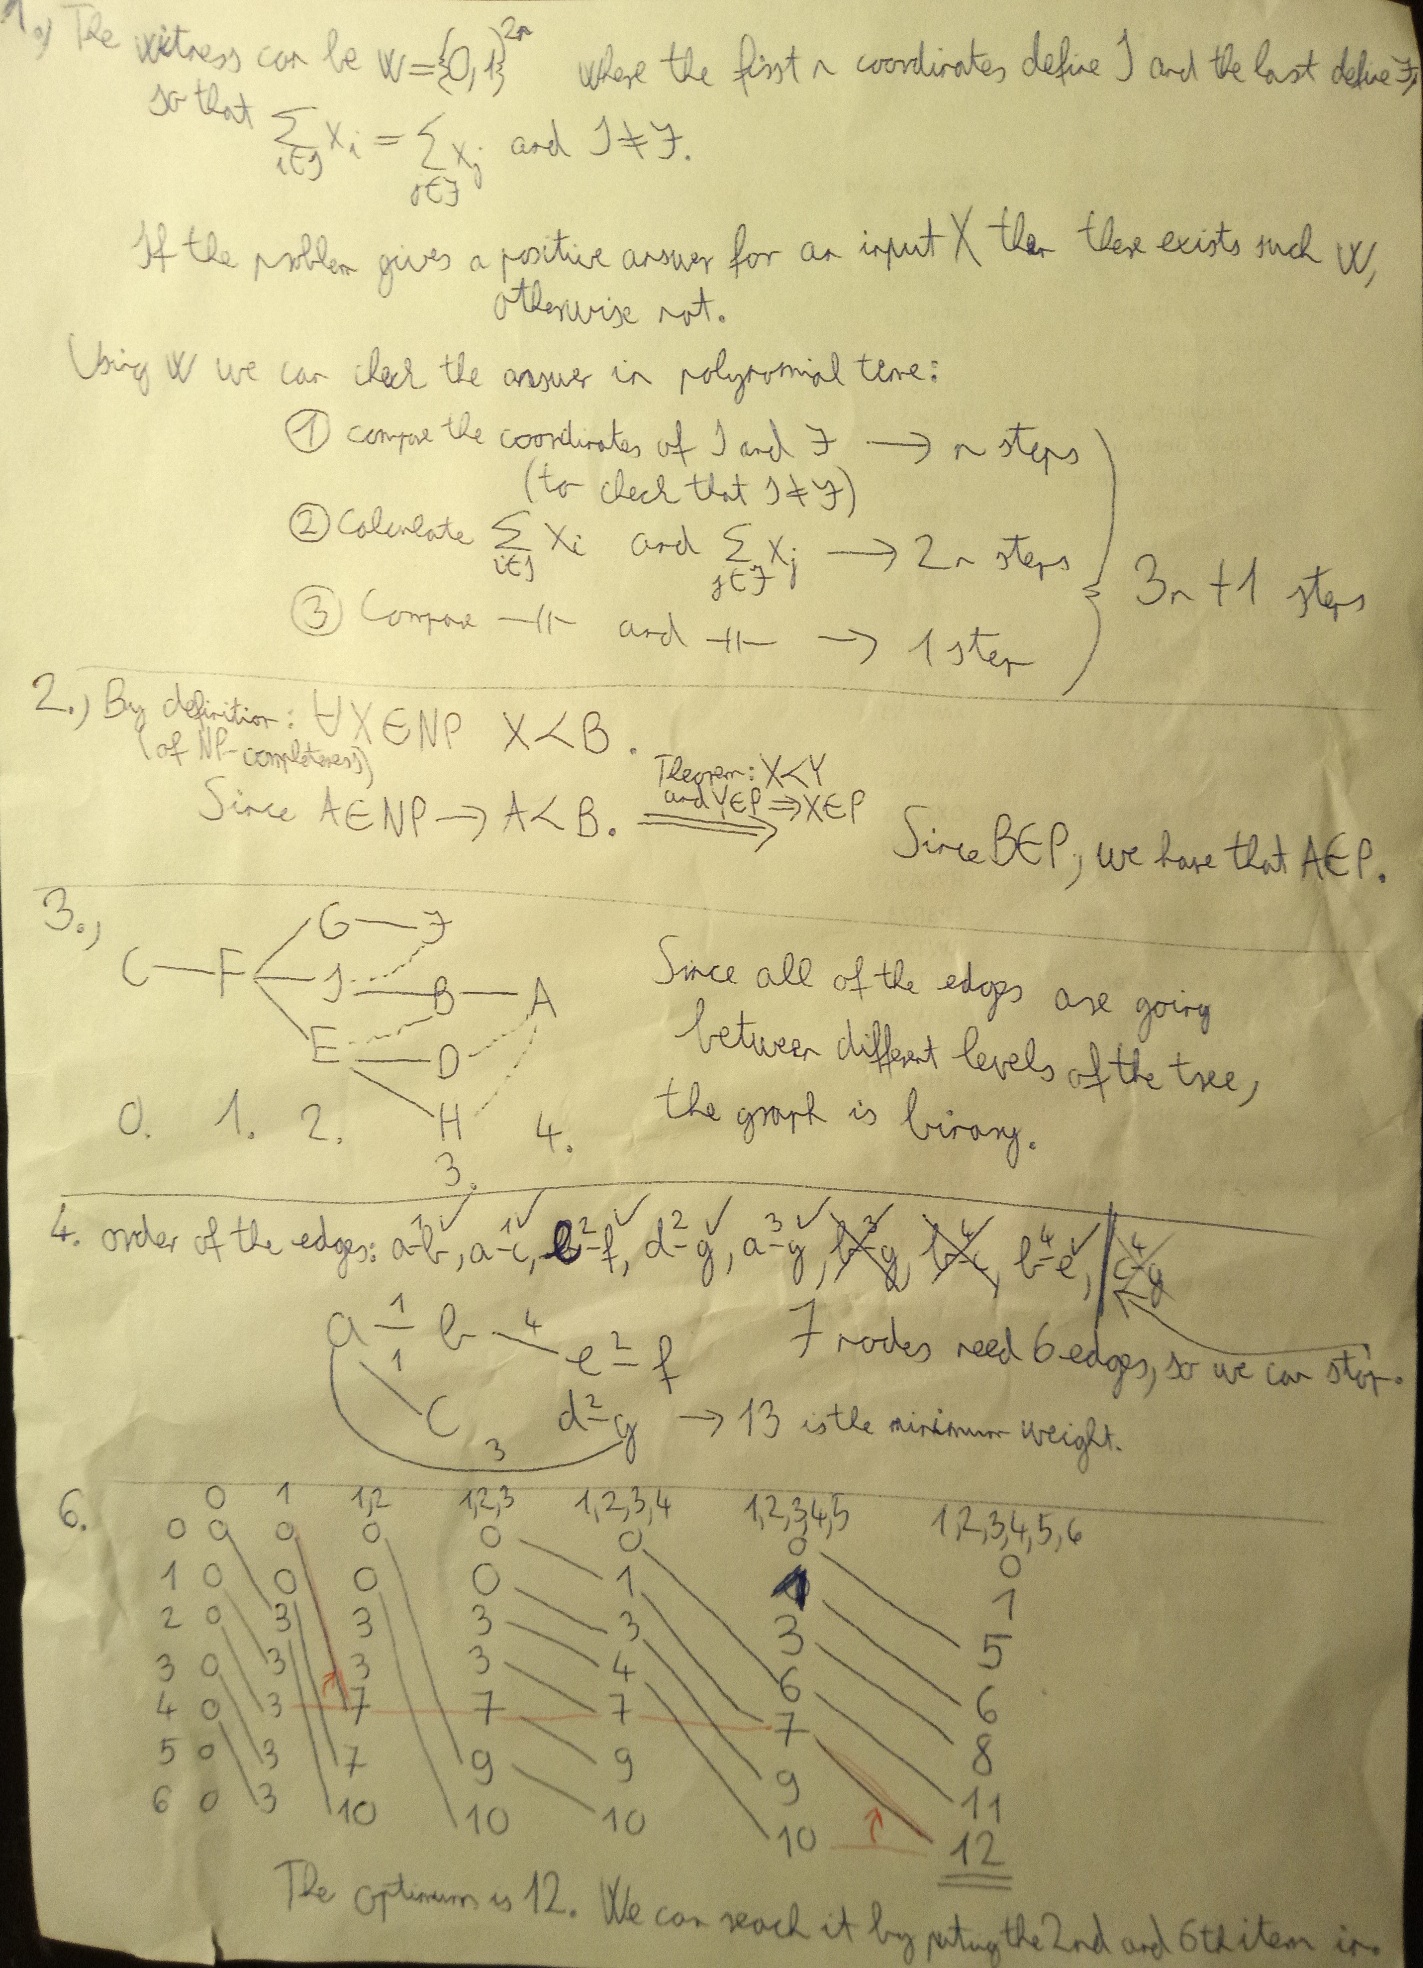 1.) The witness can be W={0,1}^2n where the first n coordinates define I and the last define J,
so that ∑ i∈I x_i = ∑ j∈J x_j and I≠J.
If the problem gives a positive answer for an input X then there exists such W,
otherwise not.
Using W we can check the answer in polynomial time:
① compare the coordinates of I and J → n steps
(to check that I≠J)
② Calculate ∑ i∈I x_i and ∑ j∈J x_j → 2n steps
3n+1 steps
③ Compare -||- and -||- → 1 step
2.) By definition: ∀X∈NP X<B.
(of NP-completeness)
Theorem: X<Y
and Y∈P ⇒ X∈P
Since A∈NP → A<B. ⇒ Since B∈P, we have that A∈P.
3.)
G J
C F I B A
E D
H
0. 1. 2. 3. 4.
Since all of the edges are going
between different levels of the tree,
the graph is binary.
4. order of the edges: a-1-b ✓, a-1-c ✓, e-2-f ✓, d-2-g ✓, a-3-g ✓, b-3-g, b-4-c, b-4-e ✓, c-4-g
a 1 b 4 e 2 f
1
c d 2 g
3
7 nodes need 6 edges, so we can stop.
→ 13 is the minimum weight.
6. 0 1 1,2 1,2,3 1,2,3,4 1,2,3,4,5 1,2,3,4,5,6
0 0 0 0 0 0 0 0
1 0 0 0 0 1 1 1
2 0 3 3 3 3 3 5
3 0 3 3 3 4 6 6
4 0 3 7 7 7 7 8
5 0 3 7 9 9 9 11
6 0 3 10 10 10 10 12
The optimum is 12. We can reach it by puting the 2nd and 6th item in.